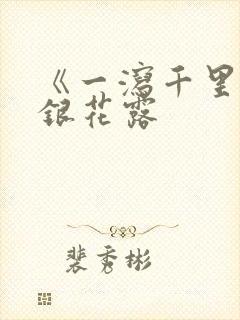 《一泻千里
银花露
裴秀彬